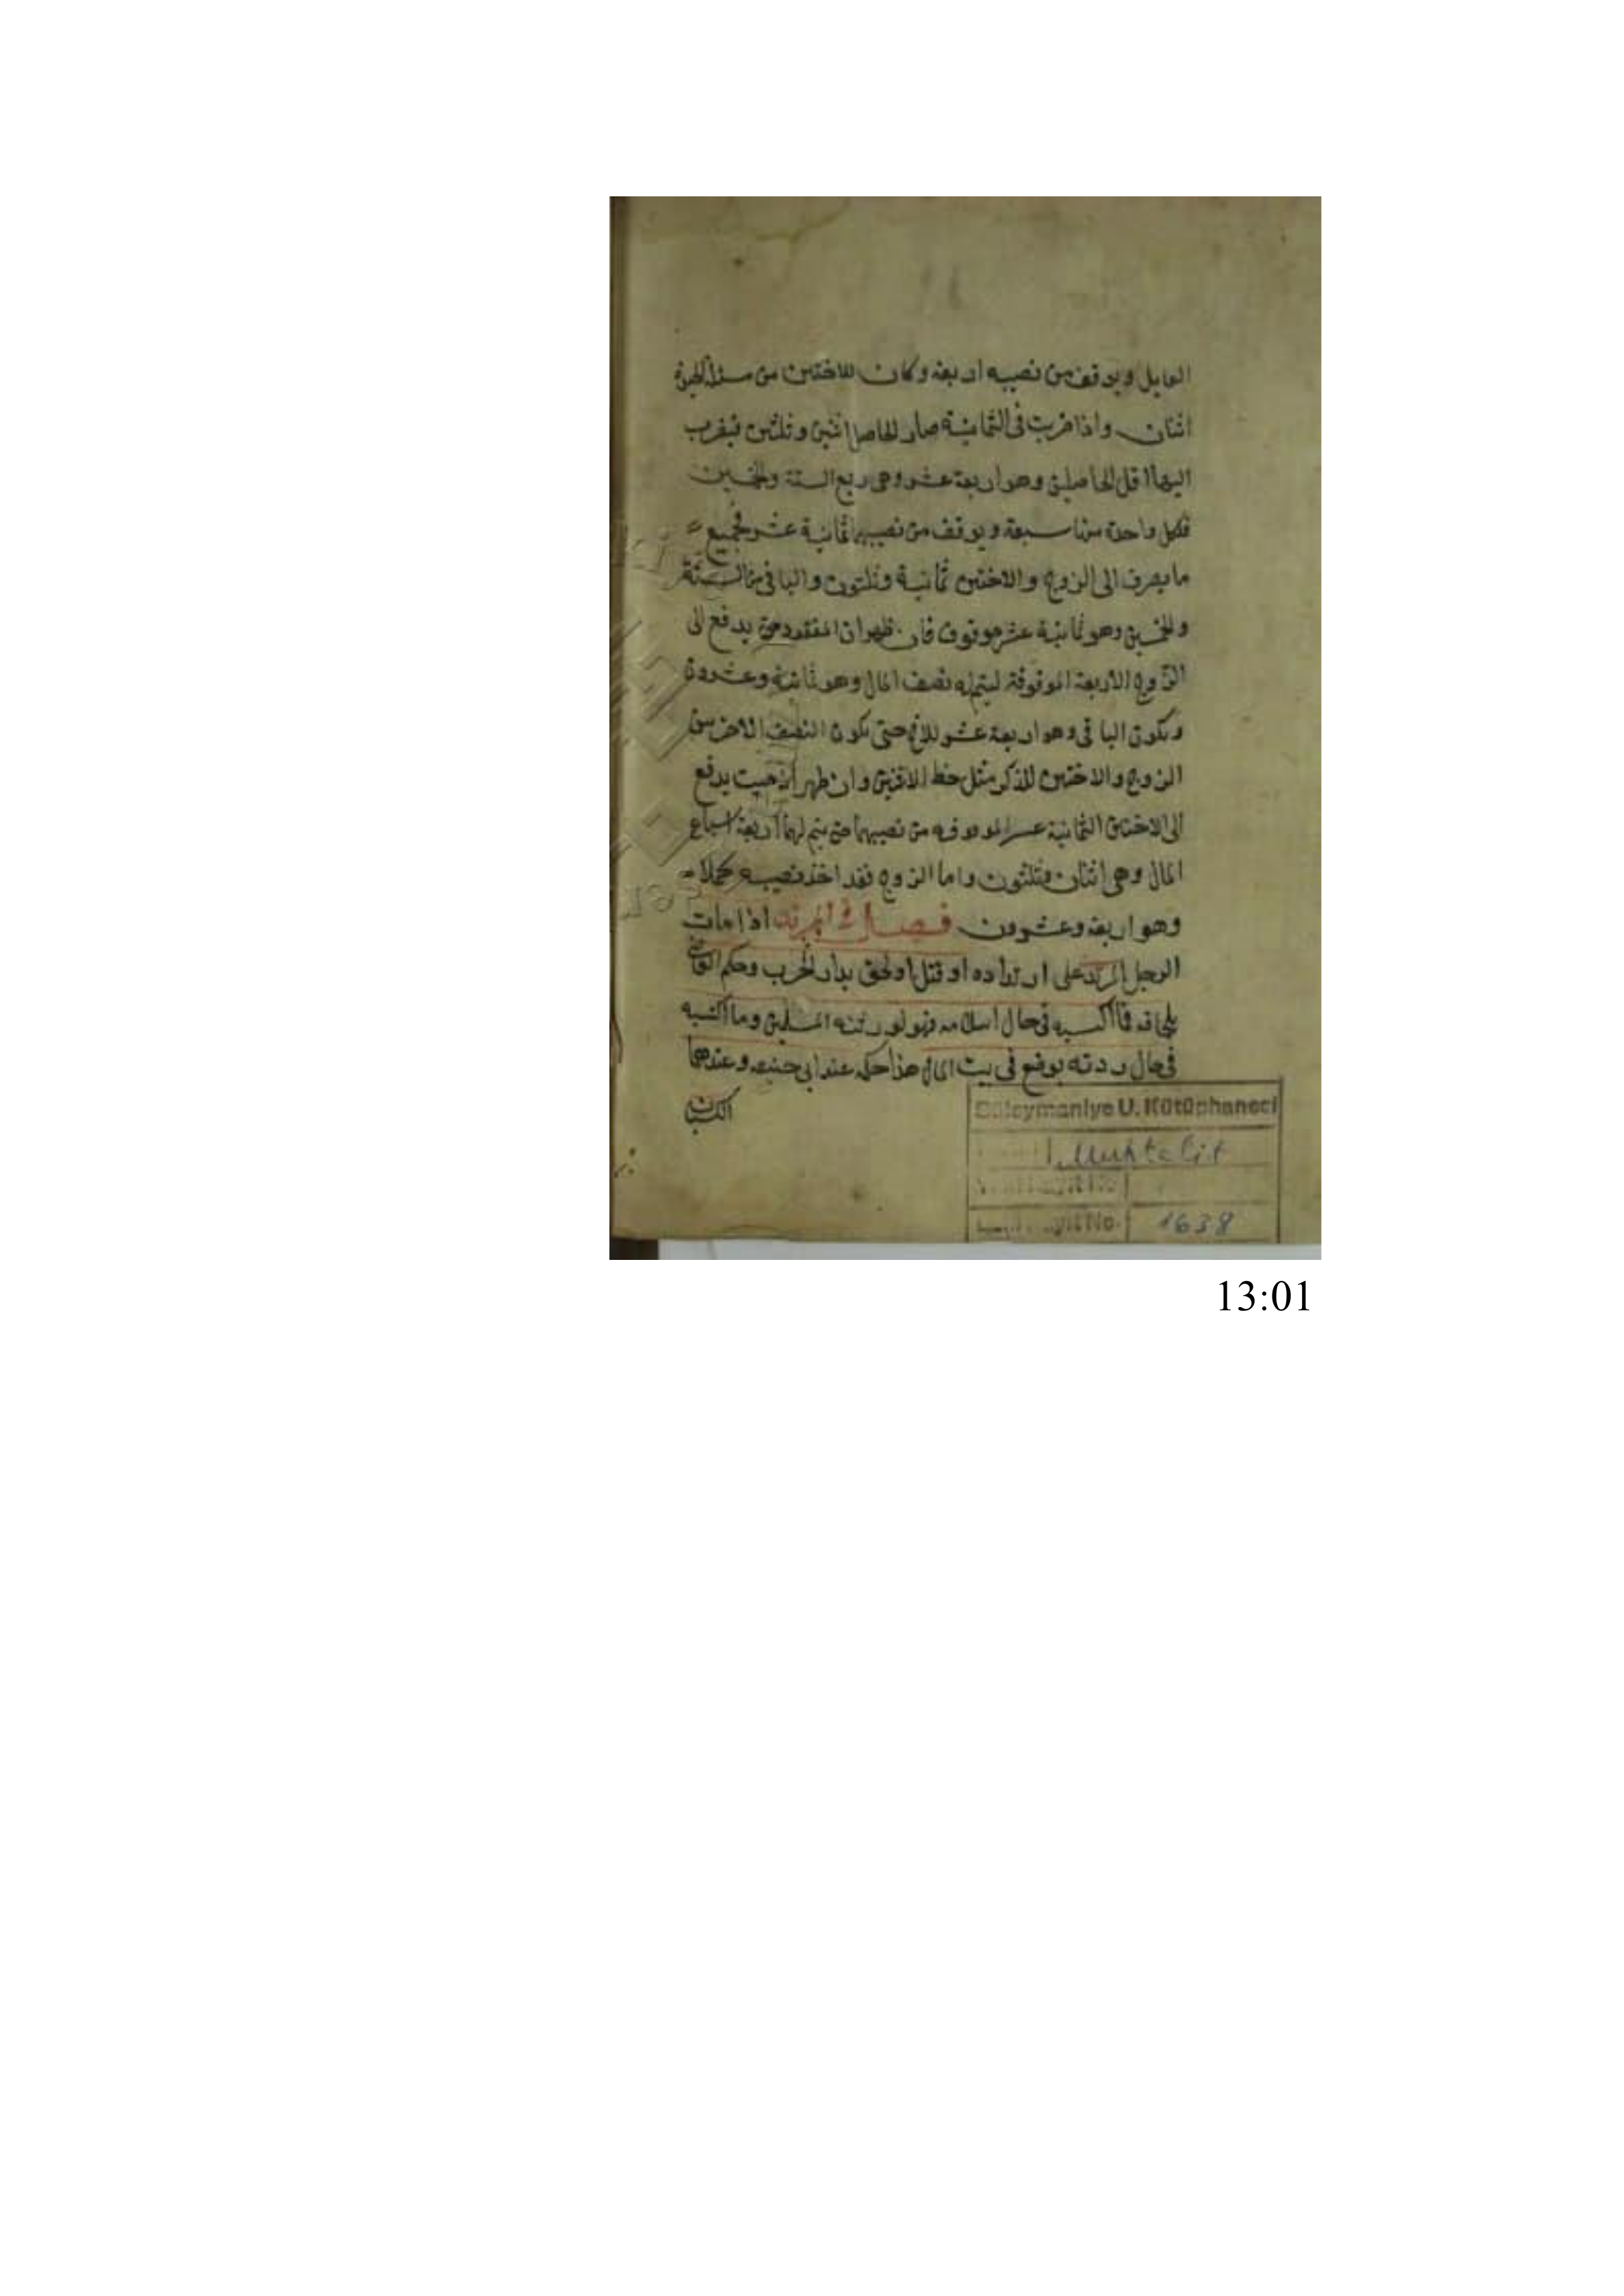 العايل ويوقف من نصيبه اربعة وكان للاختين من مسئلة الحيوة
اثنان واذا ضربت فى الثمانية صار الحاصل اثنين وثلثين فيضرب
اليها اقل الحاصلين وهو اربعة عشر وهى ربع الستة والخمسين
فلكل واحدة منها سبعة ويوقف من نصيبها ثمانية عشر فجميع
ما يصرف الى الزوج والاختين ثمانية وثلثون والباقى من الستة
والخمسين وهو ثمانية عشر موقوف فان ظهر ان المفقود حى يدفع الى
الزوج الاربعة الموقوفة ليتم له نصف المال وهو ثمانية وعشرون
ويكون الباقى وهو اربعة عشر للاخ حتى يكون النصف الاخر بين
الزوج والاختين للذكر مثل حظ الانثيين وان ظهر انه ميت يدفع
الى الاختين الثمانية عشر الموقوفه من نصيبهما حتى يتم لهما اربعة اسباع
المال وهى اثنان وثلثون واما الزوج فقد اخذ نصيبه كملا
وهو اربعة وعشرون فصل فى المرتد اذا مات
الرجل المرتد على ارتداده او قتل او لحق بدار الحرب وحكم القاضى
بلحاقه فما اكتسبه فى حال اسلامه فهو لورثته المسلمين وما اكتسبه
فى حال ردته يوضع فى بيت المال هذا حكم عند ابى حنيفه وعندهما
الكسبان
Süleymaniye U. Kütüphanesi
Muhtelit
Kayıt No
1638
13:01